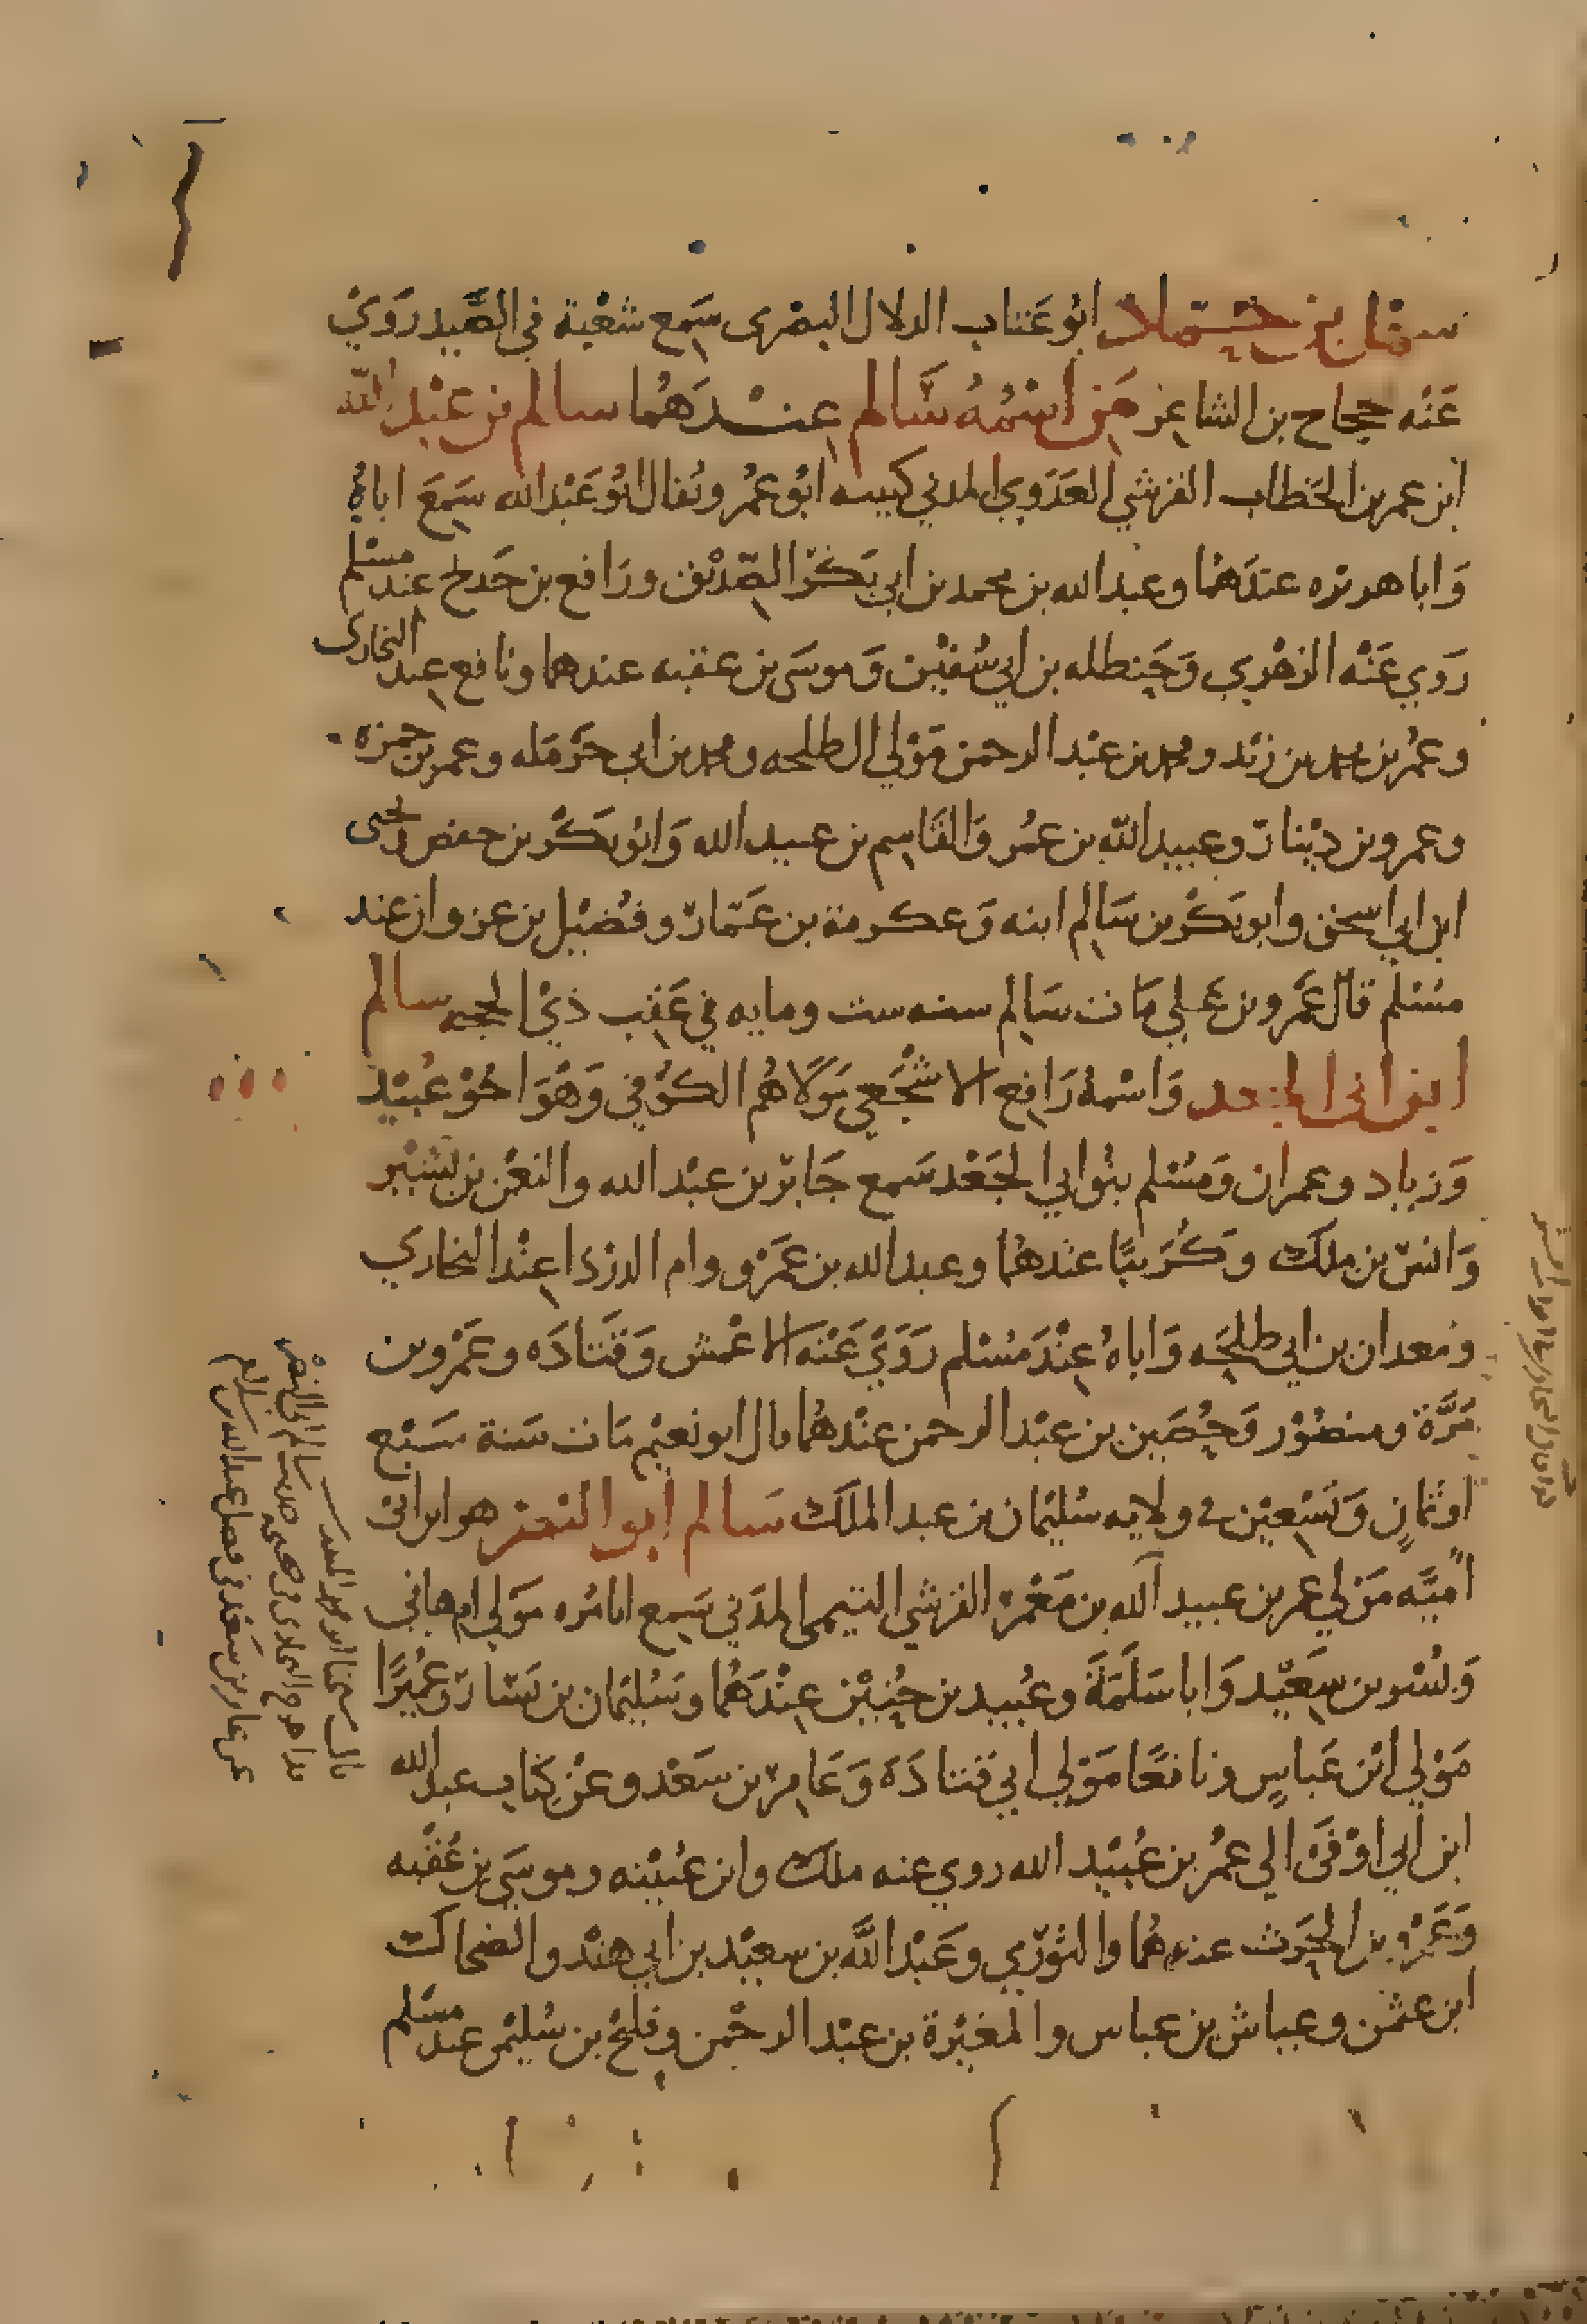 سهل بن حماد ابو عتاب الدلال البصري سمع شعبة في الصيد روي
عنه حجاج بن الشاعر من اسمه سالم عندهما سالم بن عبد الله
ابن عمر بن الخطاب القرشي العدوي المدني كنيته ابو عمر ويقال ابو عبد الله سمع اباه
وابا هريره عندهما وعبد الله بن محمد بن ابي بكر الصديق ورافع بن خديج عند مسلم
روي عنه الزهري وحنظله بن ابي سفين وموسى بن عقبه عندهما ونافع عند البخارى
وعمر بن محمد بن زيد ومحمد بن عبد الرحمن مولي ال طلحه ومحمد بن ابي حرمله وعمر بن حمزه
وعمرو بن دينار وعبيد الله بن عمر والقاسم بن عبيد الله وابو بكر بن حفص ويحيى
ابن ابي اسحق وابو بكر بن سالم ابنه وعكرمة بن عمار وفضيل بن غزوان عند
مسلم قال عمرو بن علي مات سالم سنه ست ومايه في عقب ذي الحجه سالم
ابن ابى الجعد واسمه رافع الاشجعي مولاهم الكوفي وهو اخو عبيد
وزياد وعمران ومسلم بنو ابي الجعد سمع جابر بن عبد الله والنعمن بن بشير
وانس بن ملك وكريبا عندهما وعبد الله بن عمرو وام الدردا عند البخاري
ومعدان بن ابي طلحه واباه عند مسلم روي عنه الاعمش وقتاده وعمرو بن
مرة ومنصور وحصين بن عبد الرحمن عندهما قال ابو نعيم مات سنة سبع
او ثمان وتسعين في ولايه سليمان بن عبد الملك سالم ابو النضر هو ابن ابى
امية مولي عمر بن عبيد الله بن معمر القرشي التيمي المدني سمع ابا مره مولي ام هاني
وبسر بن سعيد وابا سلمة وعبيد بن حنين عندهما وسليمان بن يسار وعميرا
مولي ابن عباس ونافعا مولي ابي قتادة وعامر بن سعد وعن كتاب عبد الله
ابن ابي اوفى الي عمر بن عبيد الله روي عنه ملك وابن عيينه وموسى بن عقبه
وعمرو بن الحرث عندهما والثوري وعبد الله بن سعيد بن ابي هند والضحاك
ابن عثمن وعياش بن عباس والمغيرة بن عبد الرحمن وفليح بن سليمن عند مسلم
سالم ابى النضر
عن عامر بن سعد في فضل عبد الله بن سلام